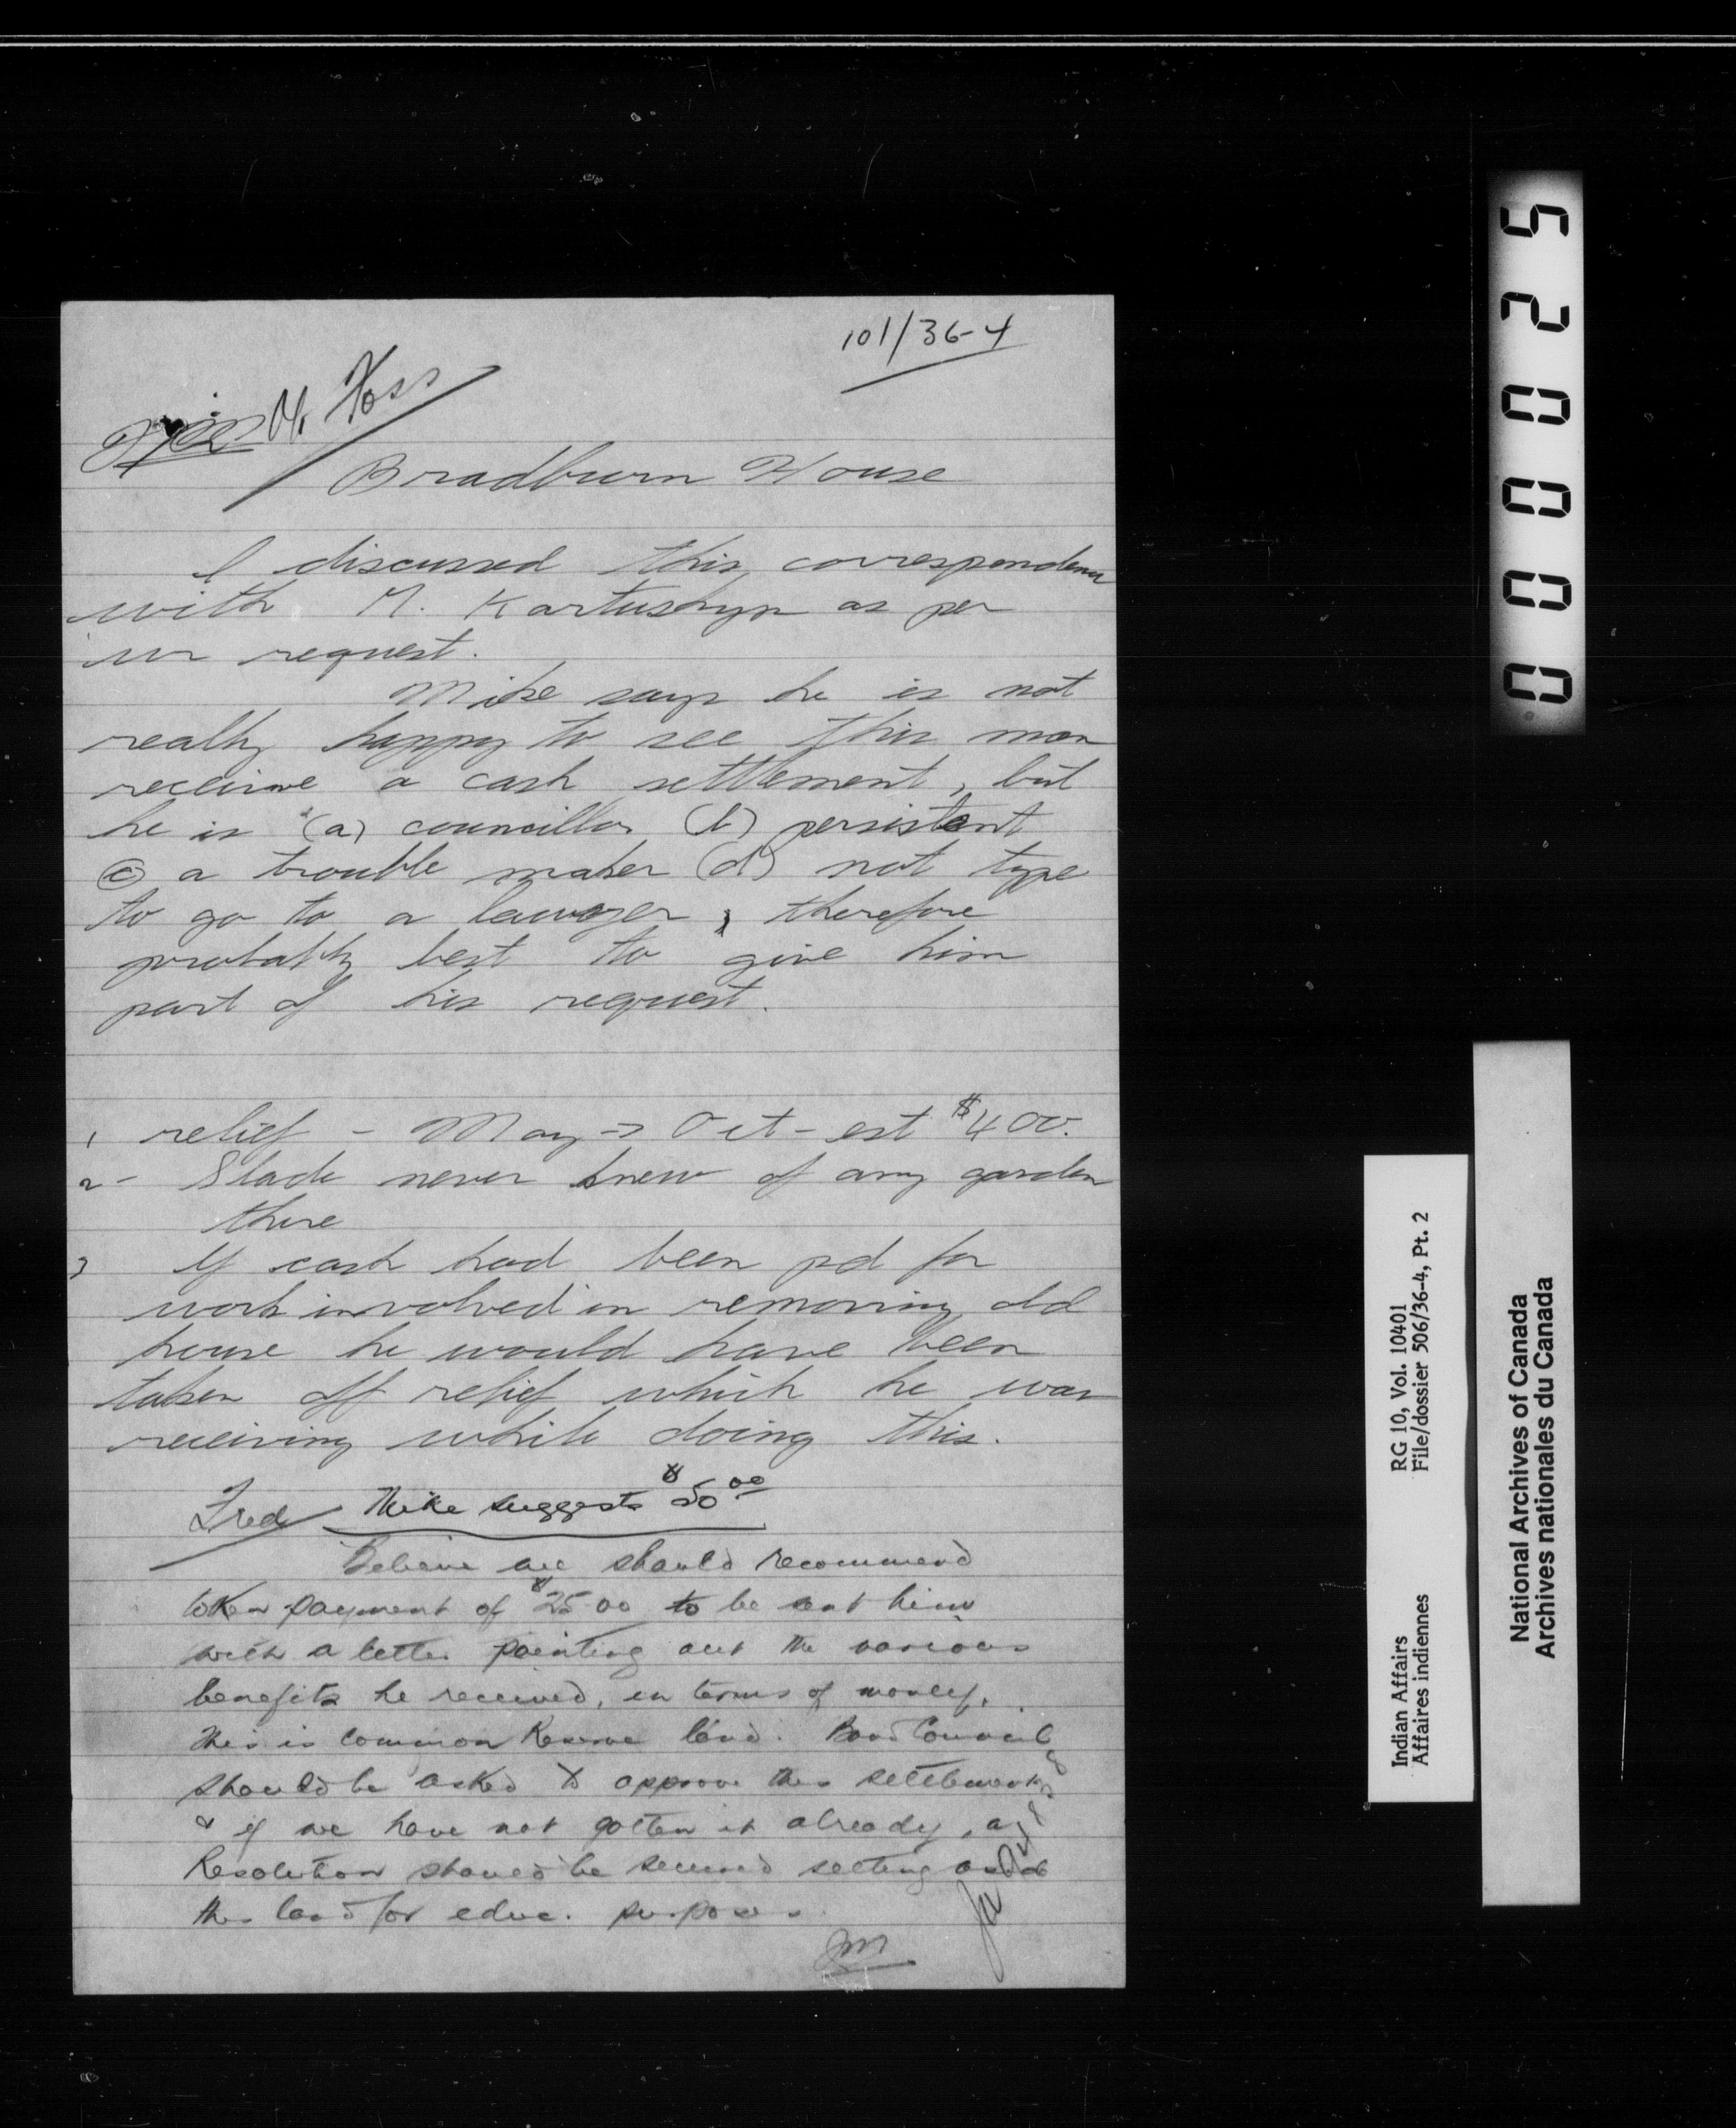 101/36-4
M. Foss
Bradburn House
I discussed this correspondence
with M. Kartushyn as per
ur request.
Mike says he is not
really happy to see this man
receive a cash settlement, but
he is (a) councillor (b) persistent
(c) a trouble maker (d) not type
to go to a lawyer, therefore
probably best to give him
part of his request.
1 relief - May → Oct - est $400.
2- Slade never knew of any garden
there
3 If cash had been pd for
work involved in removing old
house he would have been
taken off relief which he was
receiving while doing this.
Fred Mike suggests $50.00
Believe we should recommend
token payment of $25.00 to be sent him
with a letter pointing out the various
benefits he received, in terms of money.
This is common Reserve land. Band Council
should be asked to approve the settlement
& if we have not gotten it already, a
Resolution should be secured setting aside
the land for educ. purposes.
JM
000025
Indian Affairs RG 10, Vol. 10401
Affaires indiennes File/dossier 506/36-4, Pt. 2
National Archives of Canada
Archives nationales du Canada